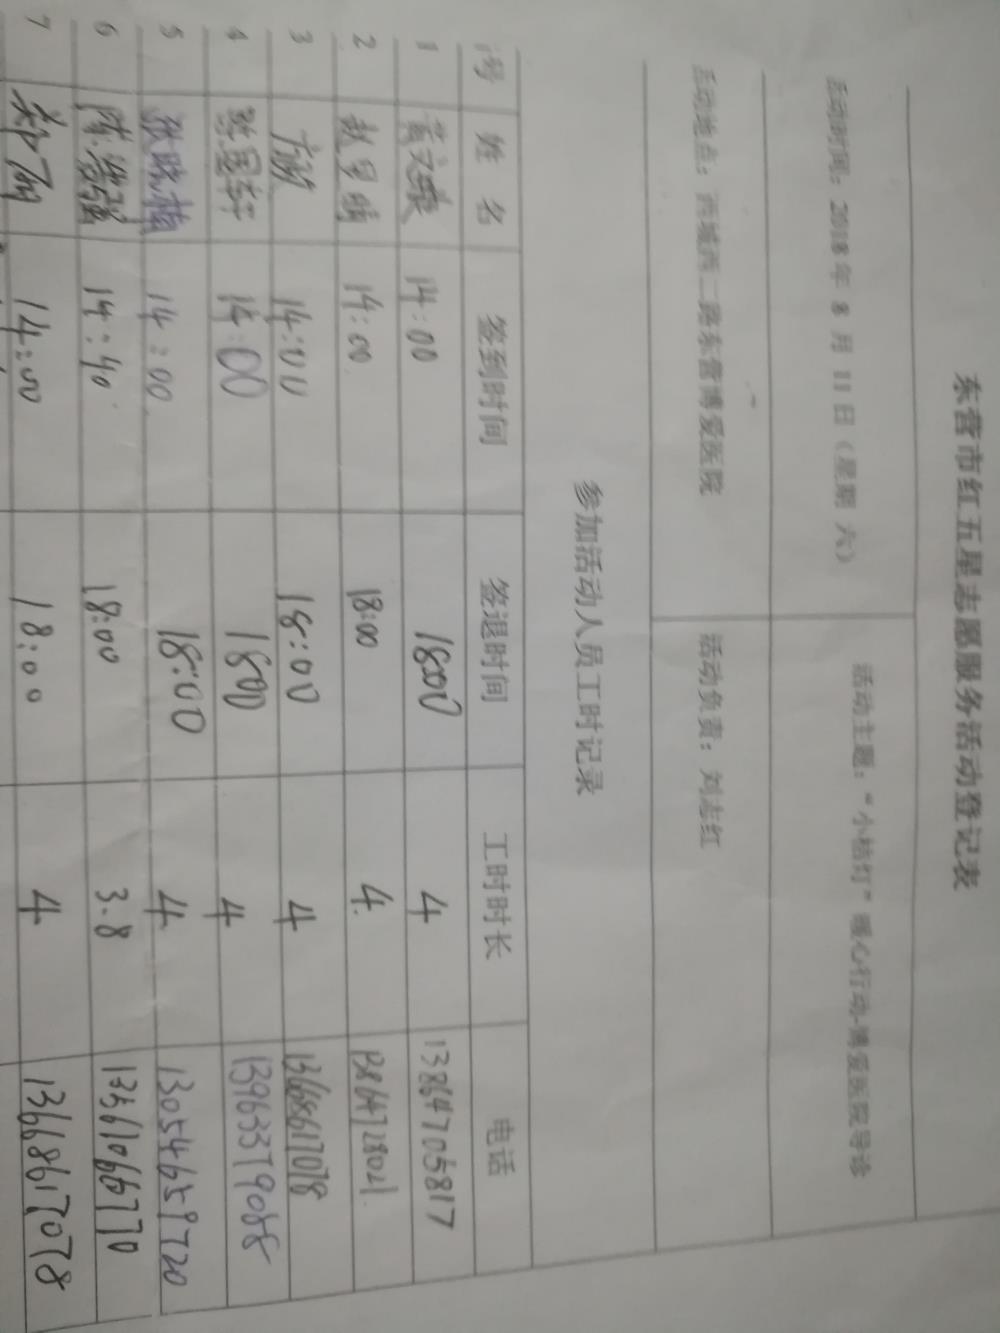 东营市红五星志愿服务活动登记表
活动时间：2018年 8 月 11日（星期 六） 活动主题：“小桔灯”暖心行动-博爱医院导诊
活动地点：西城西二路东营博爱医院 活动负责：刘志红
参加活动人员工时记录
号 姓 名 签到时间 签退时间 工时时长 电话
1 14:00 18:00 4 13864705817
2 14:00 18:00 4 13864728021
3 14:00 18:00 4 13668617078
4 14:00 1800 4 13963379088
5 张晓楠 14:00 18:00 4 13054659720
6 14:40 18:00 3.8 13361066770
7 14:00 18:00 4 13668617078